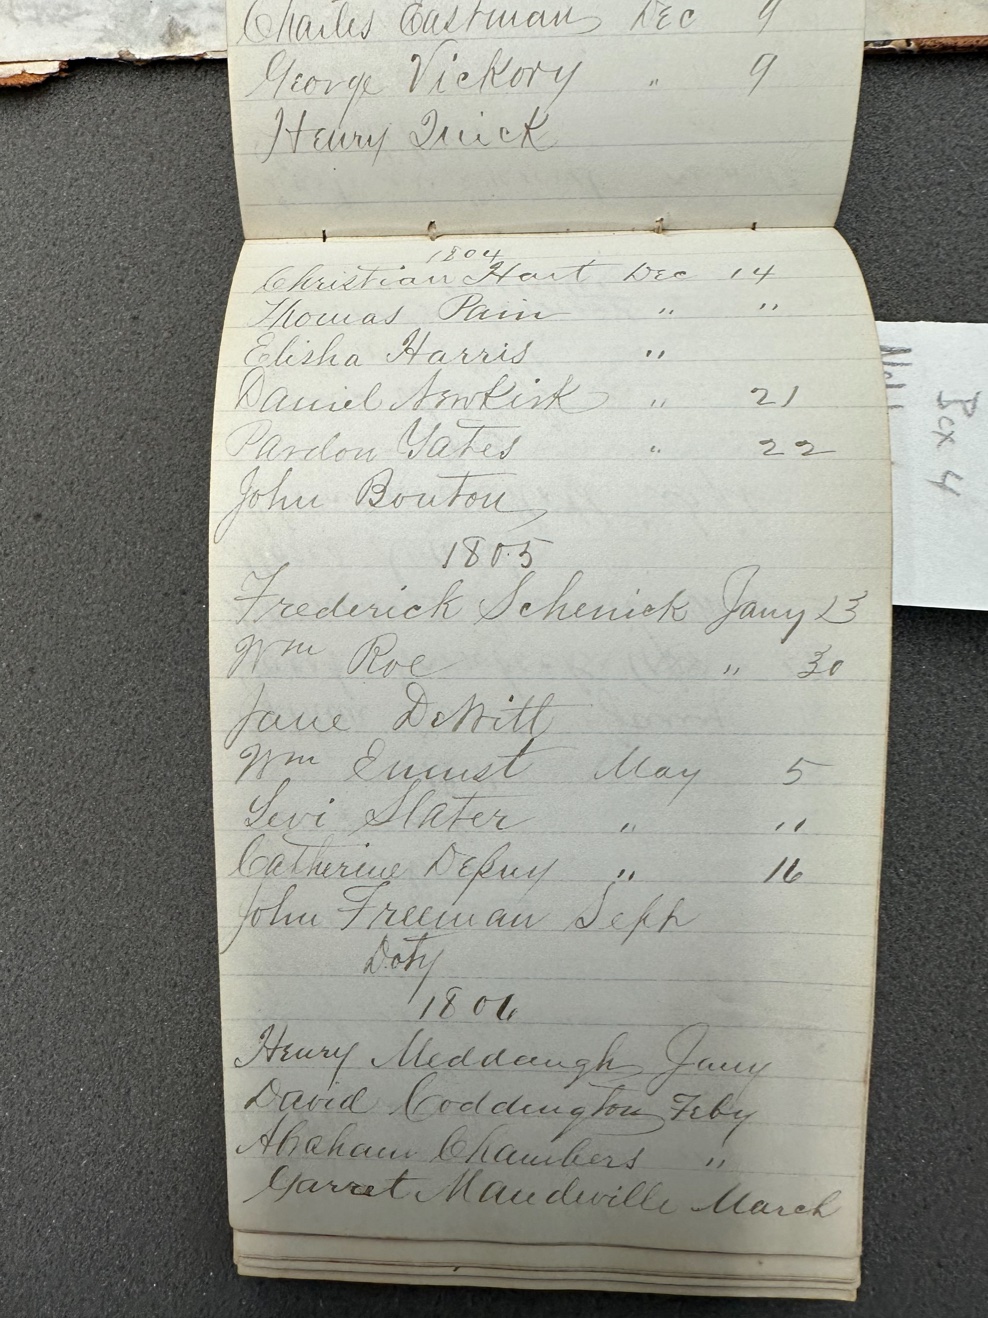 Charles Eastman Dec 9
George Vickory " 9
Henry Quick
1804
Christian Hart Dec 14
Thomas Pain " "
Elisha Harris "
Daniel Newkirk " 21
Pardon Yates " 22
John Bouton
1805
Frederick Schenick Jany 23
Wm Roe " 30
Jane DeWitt
Wm Ennist May 5
Levi Slater " "
Catherine Depuy " 16
John Freeman Sept
Doty
1806
Henry Meddaugh Jany
David Coddington Feby
Abraham Chambers "
Garret Mandeville March
Box 4